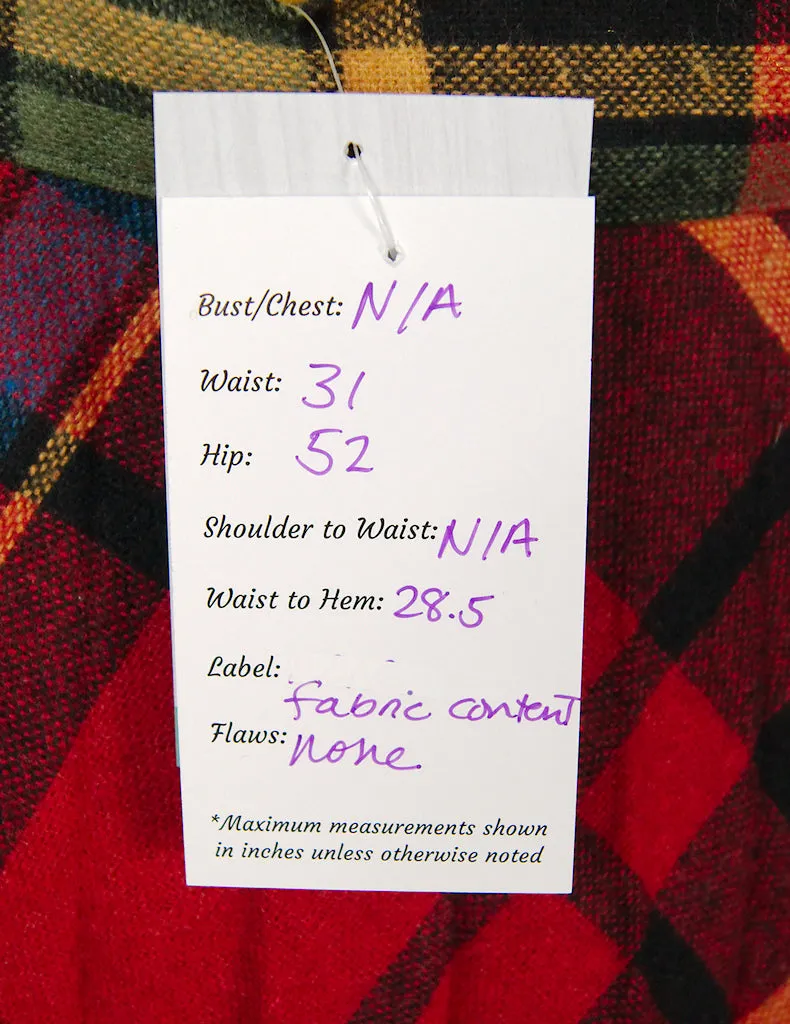 Bust/Chest: N/A
Waist: 31
Hip: 52
Shoulder to Waist: N/A
Waist to Hem: 28.5
Label:
fabric content
Flaws: none.
*Maximum measurements shown
in inches unless otherwise noted